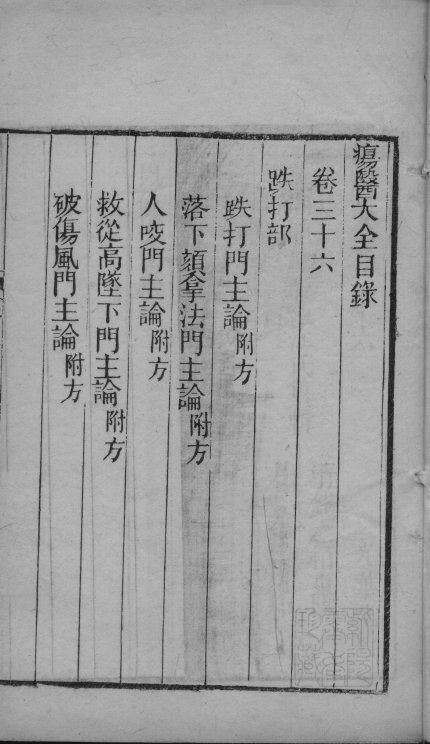 瘍醫大全目錄
卷三十六
跌打部
跌打門主論附方
落下頦拿法門主論附方
人咬門主論附方
救從高墜下門主論附方
破傷風門主論附方